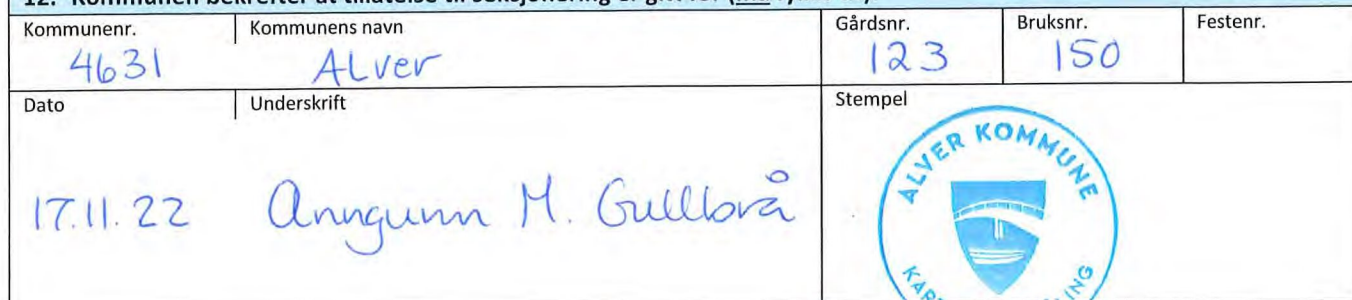 12. Kommunen bekrefter at tillatelse til seksjonering er gitt for
Kommunenr. Kommunens navn Gårdsnr. Bruksnr. Festenr.
4631 Alver 123 150
Dato Underskrift Stempel
17.11.22 Anngunn M. Gullbrå
ALVER KOMMUNE